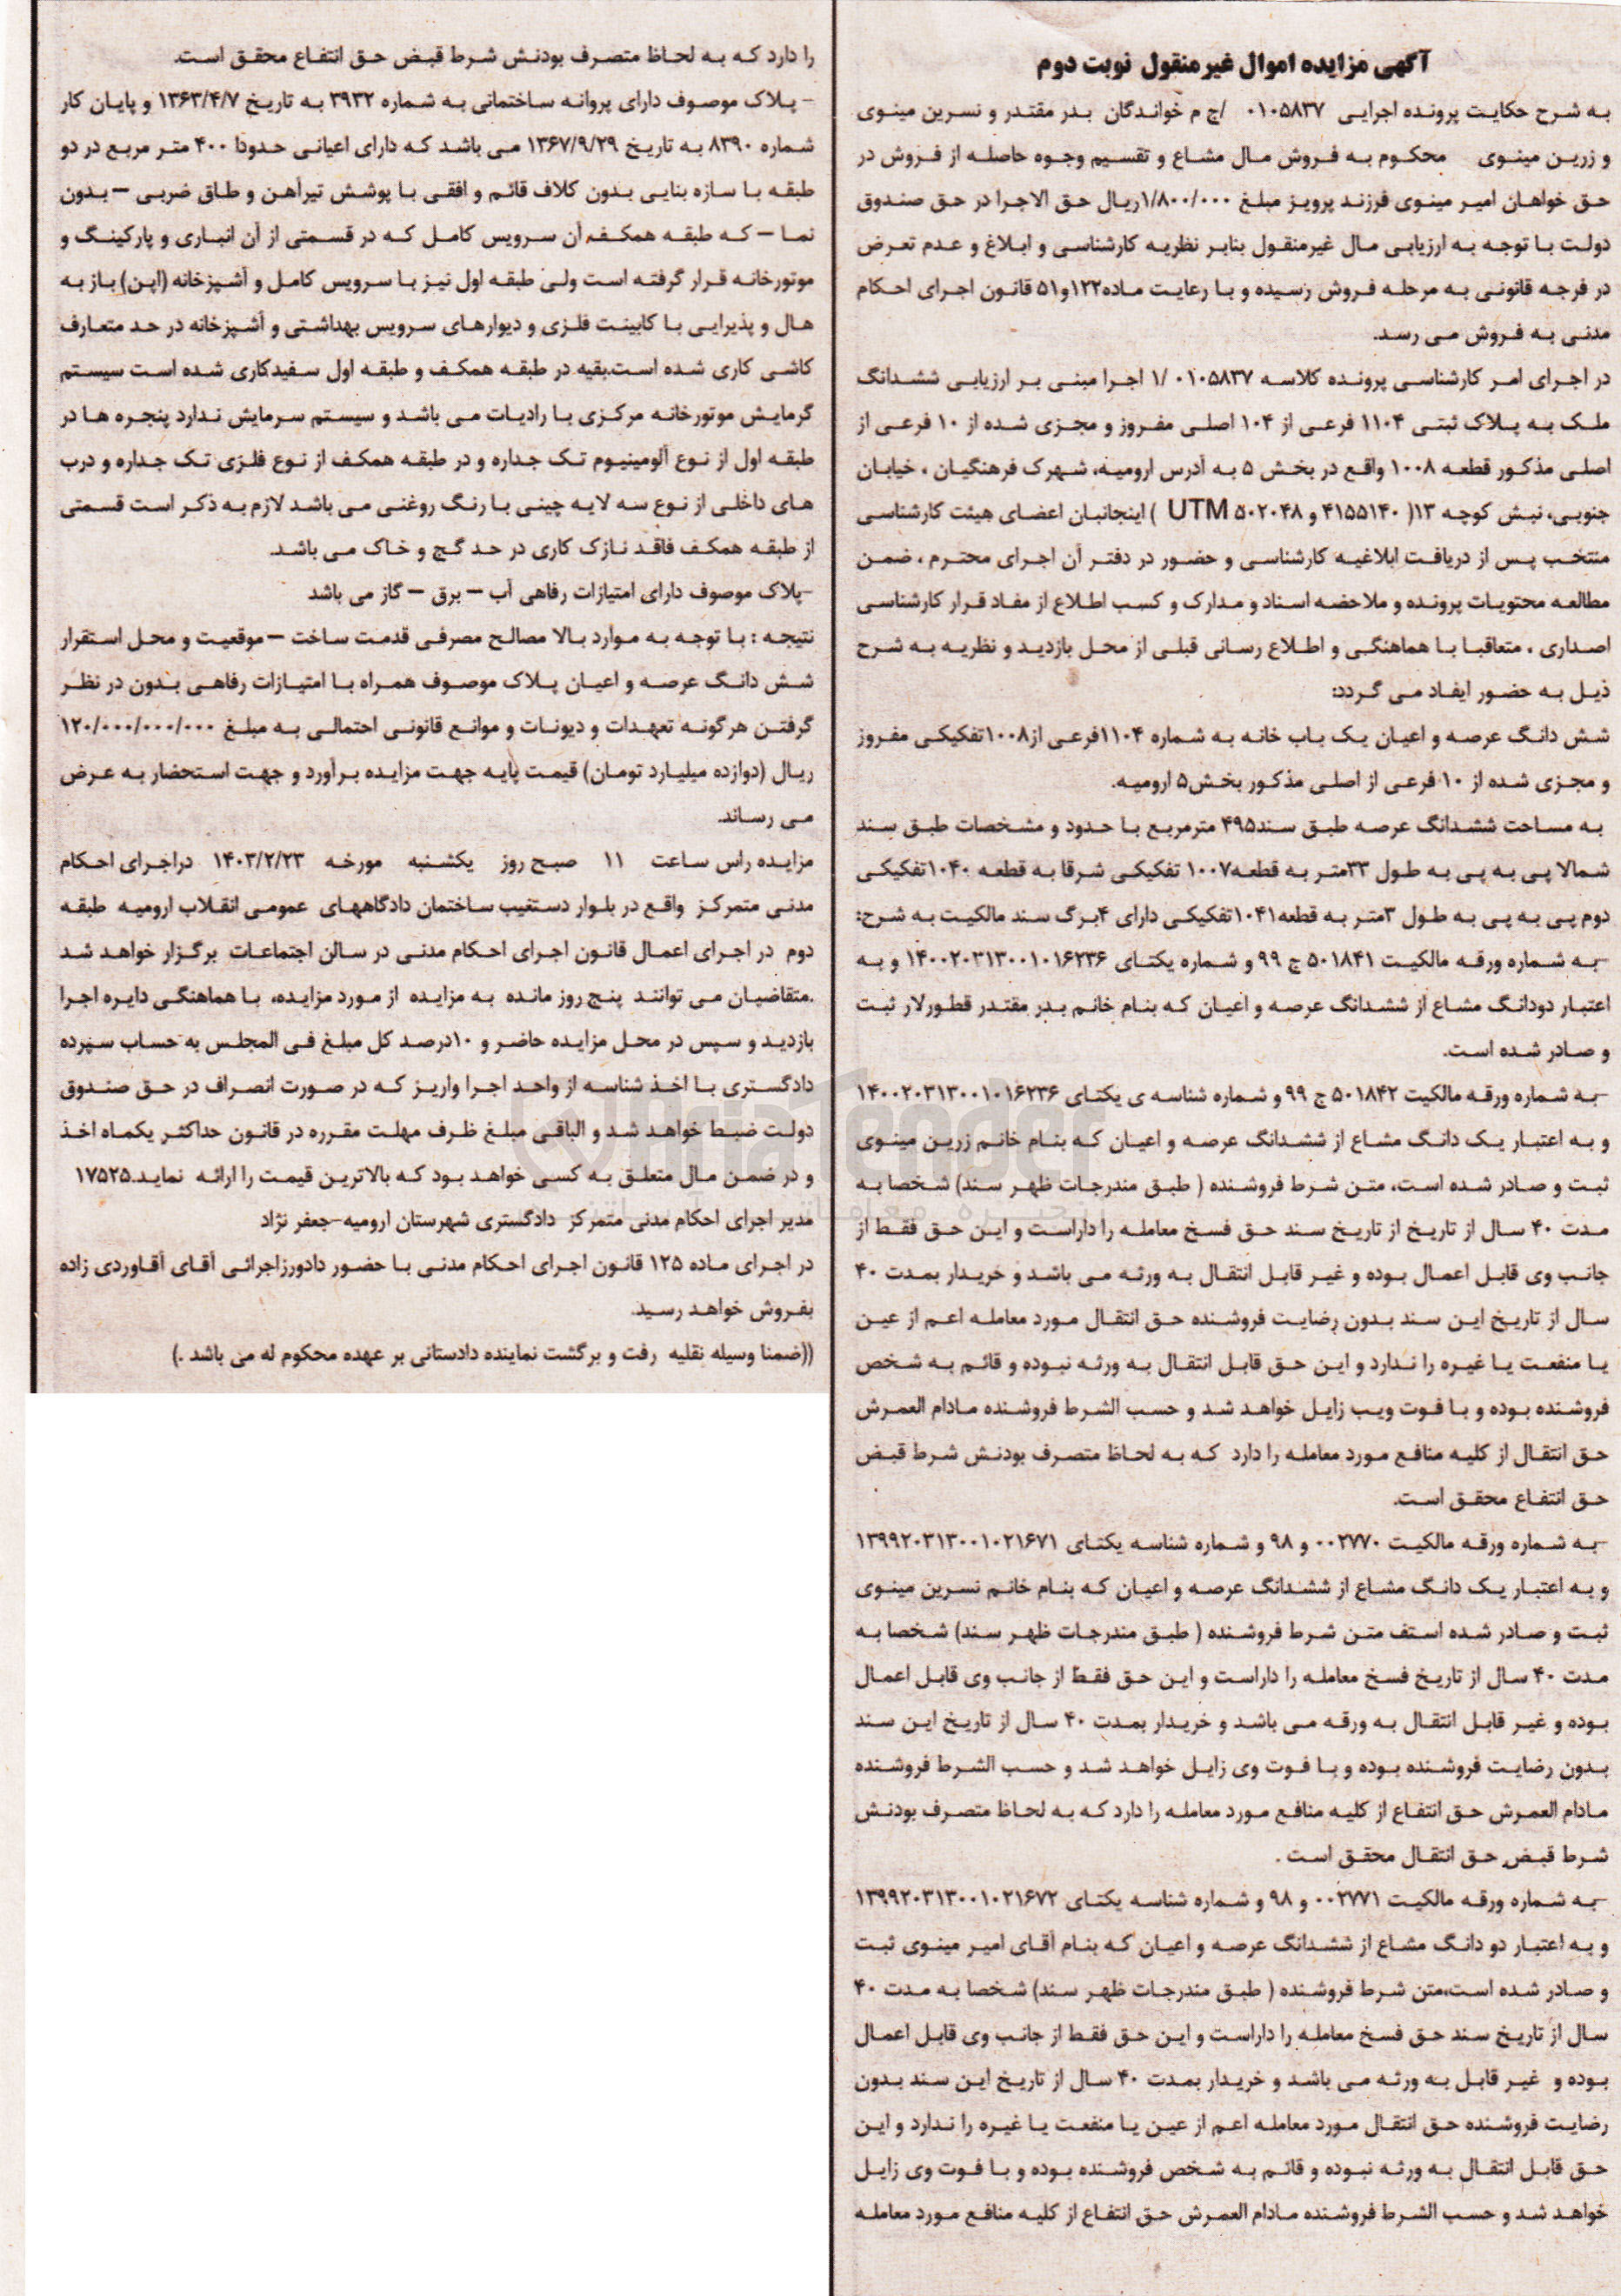 آگهی مزایده اموال غیرمنقول نوبت دوم
به شرح حکایت پرونده اجرایی ۰۱۰۵۸۳۷ /ج م خواندگان بدر مقتدر و نسرین مینوی
و زرین مینوی محکوم به فروش مال مشاع و تقسیم وجوه حاصله از فروش در
حق خواهان امیر مینوی فرزند پرویز مبلغ ۱/۸۰۰/۰۰۰ریال حق الاجرا در حق صندوق
دولت با توجه به ارزیابی مال غیرمنقول بنابر نظریه کارشناسی و ابلاغ و عدم تعرض
در فرجه قانونی به مرحله فروش رسیده و با رعایت ماده۱۲۲و۵۱ قانون اجرای احکام
مدنی به فروش می رسد.
در اجرای امر کارشناسی پرونده کلاسه ۰۱۰۵۸۳۷ /۱ اجرا مبنی بر ارزیابی ششدانگ
ملک به پلاک ثبتی ۱۱۰۴ فرعی از ۱۰۴ اصلی مفروز و مجزی شده از ۱۰ فرعی از
اصلی مذکور قطعه ۱۰۰۸ واقع در بخش ۵ به آدرس ارومیه، شهرک فرهنگیان ، خیابان
جنوبی، نبش کوچه ۱۳( ۴۱۵۵۱۴۰ و ۵۰۲۰۴۸ UTM ) اینجانبان اعضای هیئت کارشناسی
منتخب پس از دریافت ابلاغیه کارشناسی و حضور در دفتر آن اجرای محترم ، ضمن
مطالعه محتویات پرونده و ملاحضه اسناد و مدارک و کسب اطلاع از مفاد قرار کارشناسی
اصداری ، متعاقبا با هماهنگی و اطلاع رسانی قبلی از محل بازدید و نظریه به شرح
ذیل به حضور ایفاد می گردد:
شش دانگ عرصه و اعیان یک باب خانه به شماره ۱۱۰۴فرعی از۱۰۰۸تفکیکی مفروز
و مجزی شده از ۱۰ فرعی از اصلی مذکور بخش۵ ارومیه.
به مساحت ششدانگ عرصه طبق سند۴۹۵ مترمربع با حدود و مشخصات طبق سند
شمالا پی به پی به طول ۳۳متر به قطعه۱۰۰۷ تفکیکی شرقا به قطعه ۱۰۴۰تفکیکی
دوم پی به پی به طول ۳متر به قطعه۱۰۴۱تفکیکی دارای ۴برگ سند مالکیت به شرح:
-به شماره ورقه مالکیت ۵۰۱۸۴۱ ج ۹۹ و شماره یکتای ۱۴۰۰۲۰۳۱۳۰۰۱۰۱۶۲۳۶ و به
اعتبار دودانگ مشاع از ششدانگ عرصه و اعیان که بنام خانم بدر مقتدر قطورلار ثبت
و صادر شده است.
-به شماره ورقه مالکیت ۵۰۱۸۴۲ ج ۹۹ و شماره شناسه ی یکتای ۱۴۰۰۲۰۳۱۳۰۰۱۰۱۶۲۳۶
و به اعتبار یک دانگ مشاع از ششدانگ عرصه و اعیان که بنام خانم زرین مینوی
ثبت و صادر شده است، متن شرط فروشنده ( طبق مندرجات ظهر سند) شخصا به
مدت ۴۰ سال از تاریخ از تاریخ سند حق فسخ معامله را داراست و این حق فقط از
جانب وی قابل اعمال بوده و غیر قابل انتقال به ورثه می باشد و خریدار بمدت ۴۰
سال از تاریخ این سند بدون رضایت فروشنده حق انتقال مورد معامله اعم از عین
یا منفعت یا غیره را ندارد و این حق قابل انتقال به ورثه نبوده و قائم به شخص
فروشنده بوده و با فوت ویب زایل خواهد شد و حسب الشرط فروشنده مادام العمرش
حق انتقال از کلیه منافع مورد معامله را دارد که به لحاظ متصرف بودنش شرط قبض
حق انتفاع محقق است.
-به شماره ورقه مالکیت ۰۰۲۷۷۰ و ۹۸ و شماره شناسه یکتای ۱۳۹۹۲۰۳۱۳۰۰۱۰۲۱۶۷۱
و به اعتبار یک دانگ مشاع از ششدانگ عرصه و اعیان که بنام خانم نسرین مینوی
ثبت و صادر شده استف متن شرط فروشنده ( طبق مندرجات ظهر سند) شخصا به
مدت ۴۰ سال از تاریخ فسخ معامله را داراست و این حق فقط از جانب وی قابل اعمال
بوده و غیر قابل انتقال به ورقه می باشد و خریدار بمدت ۴۰ سال از تاریخ این سند
بدون رضایت فروشنده بوده و با فوت وی زایل خواهد شد و حسب الشرط فروشنده
مادام العمرش حق انتفاع از کلیه منافع مورد معامله را دارد که به لحاظ متصرف بودنش
شرط قبض حق انتقال محقق است .
-به شماره ورقه مالکیت ۰۰۲۷۷۱ و ۹۸ و شماره شناسه یکتای ۱۳۹۹۲۰۳۱۳۰۰۱۰۲۱۶۷۲
و به اعتبار دو دانگ مشاع از ششدانگ عرصه و اعیان که بنام آقای امیر مینوی ثبت
و صادر شده است،متن شرط فروشنده ( طبق مندرجات ظهر سند) شخصا به مدت ۴۰
سال از تاریخ سند حق فسخ معامله را داراست و این حق فقط از جانب وی قابل اعمال
بوده و غیر قابل به ورثه می باشد و خریدار بمدت ۴۰ سال از تاریخ این سند بدون
رضایت فروشنده حق انتقال مورد معامله اعم از عین یا منفعت یا غیره را ندارد و این
حق قابل انتقال به ورثه نبوده و قائم به شخص فروشنده بوده و با فوت وی زایل
خواهد شد و حسب الشرط فروشنده مادام العمرش حق انتفاع از کلیه منافع مورد معامله
را دارد که به لحاظ متصرف بودنش شرط قبض حق انتفاع محقق است.
- پلاک موصوف دارای پروانه ساختمانی به شماره ۳۹۳۲ به تاریخ ۱۳۶۳/۴/۷ و پایان کار
شماره ۸۳۹۰ به تاریخ ۱۳۶۷/۹/۲۹ می باشد که دارای اعیانی حدودا ۴۰۰ متر مربع در دو
طبقه با سازه بنایی بدون کلاف قائم و افقی با پوشش تیرآهن و طاق ضربی – بدون
نما – که طبقه همکف آن سرویس کامل که در قسمتی از آن انباری و پارکینگ و
موتورخانه قرار گرفته است ولی طبقه اول نیز با سرویس کامل و آشپزخانه (اپن) باز به
هال و پذیرایی با کابینت فلزی و دیوارهای سرویس بهداشتی و آشپزخانه در حد متعارف
کاشی کاری شده است.بقیه در طبقه همکف و طبقه اول سفیدکاری شده است سیستم
گرمایش موتورخانه مرکزی با رادیات می باشد و سیستم سرمایش ندارد پنجره ها در
طبقه اول از نوع آلومینیوم تک جداره و در طبقه همکف از نوع فلزی تک جداره و درب
های داخلی از نوع سه لایه چینی با رنگ روغنی می باشد لازم به ذکر است قسمتی
از طبقه همکف فاقد نازک کاری در حد گچ و خاک می باشد.
-پلاک موصوف دارای امتیازات رفاهی آب – برق – گاز می باشد
نتیجه : با توجه به موارد بالا مصالح مصرفی قدمت ساخت –موقعیت و محل استقرار
شش دانگ عرصه و اعیان پلاک موصوف همراه با امتیازات رفاهی بدون در نظر
گرفتن هرگونه تعهدات و دیونات و موانع قانونی احتمالی به مبلغ ۱۲۰/۰۰۰/۰۰۰/۰۰۰
ریال (دوازده میلیارد تومان) قیمت پایه جهت مزایده برآورد و جهت استحضار به عرض
می رساند.
مزایده راس ساعت ۱۱ صبح روز یکشنبه مورخه ۱۴۰۳/۲/۲۳ دراجرای احکام
مدنی متمرکز واقع در بلوار دستغیب ساختمان دادگاههای عمومی انقلاب ارومیه طبقه
دوم در اجرای اعمال قانون اجرای احکام مدنی در سالن اجتماعات برگزار خواهد شد
.متقاضیان می توانند پنج روز مانده به مزایده از مورد مزایده، با هماهنگی دایره اجرا
بازدید و سپس در محل مزایده حاضر و ۱۰درصد کل مبلغ فی المجلس به حساب سپرده
دادگستری با اخذ شناسه از واحد اجرا واریز که در صورت انصراف در حق صندوق
دولت ضبط خواهد شد و الباقی مبلغ ظرف مهلت مقرره در قانون حداکثر یکماه اخذ
و در ضمن مال متعلق به کسی خواهد بود که بالاترین قیمت را ارائه نماید.۱۷۵۲۵
مدیر اجرای احکام مدنی متمرکز دادگستری شهرستان ارومیه-جعفر نژاد
در اجرای ماده ۱۲۵ قانون اجرای احکام مدنی با حضور دادورزاجرائی آقای آقاوردی زاده
بفروش خواهد رسید.
((ضمنا وسیله نقلیه رفت و برگشت نماینده دادستانی بر عهده محکوم له می باشد .)
AriaTender